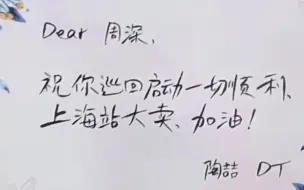 Dear 周深、
祝你巡回启动一切顺利、
上海站大卖、加油！
陶喆 DT